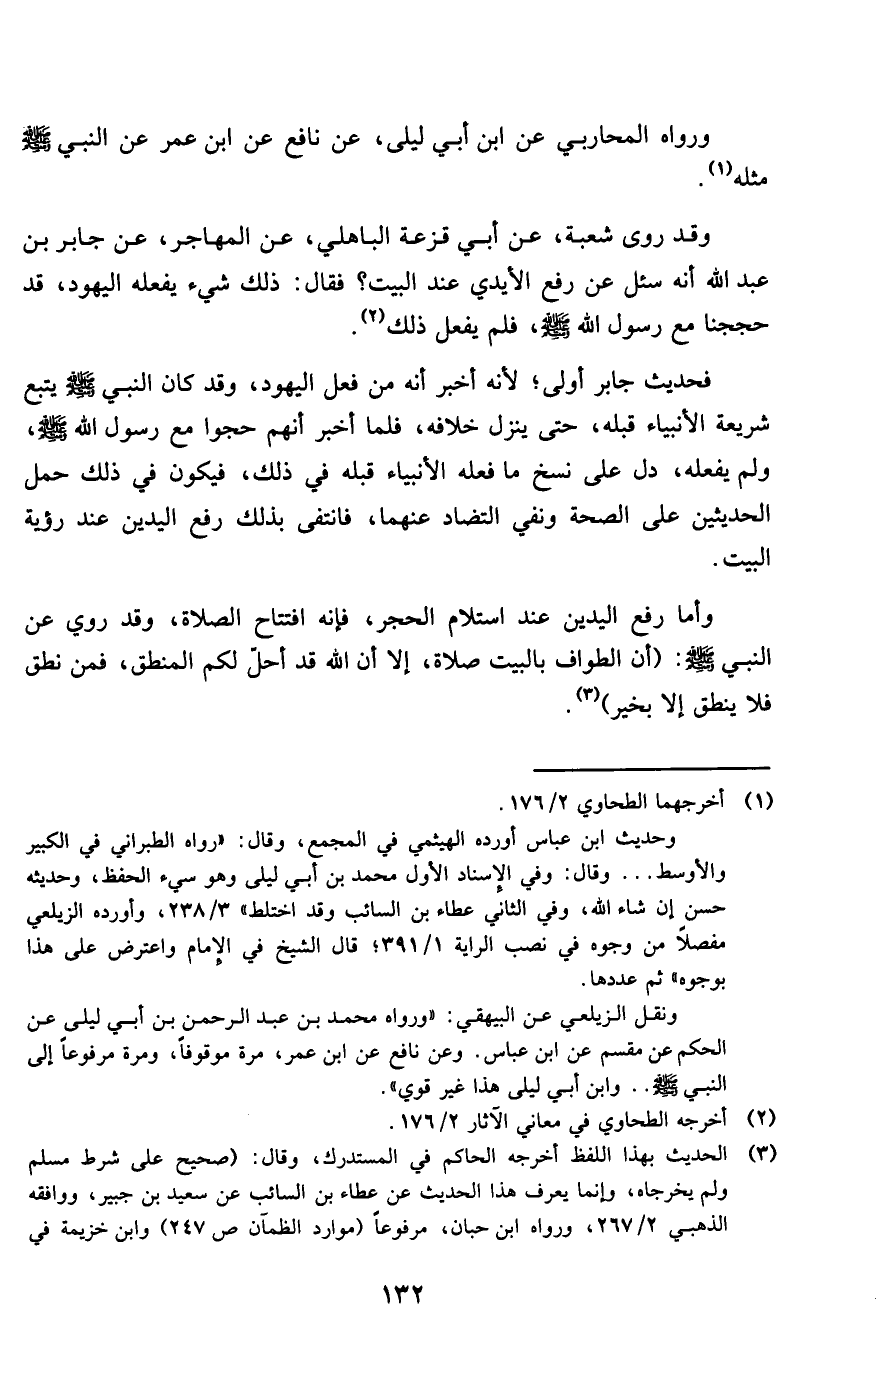 ورواه المحاربي عن ابن أبي ليلى، عن نافع عن ابن عمر عن النبي ﷺ
مثله(١).
وقد روى شعبة، عن أبي قزعة الباهلي، عن المهاجر، عن جابر بن
عبد الله أنه سئل عن رفع الأيدي عند البيت؟ فقال: ذلك شيء يفعله اليهود، قد
حججنا مع رسول الله ﷺ، فلم يفعل ذلك(٢).
فحديث جابر أولى؛ لأنه أخبر أنه من فعل اليهود، وقد كان النبي ﷺ يتبع
شريعة الأنبياء قبله، حتى ينزل خلافه، فلما أخبر أنهم حجوا مع رسول الله ﷺ،
ولم يفعله، دل على نسخ ما فعله الأنبياء قبله في ذلك، فيكون في ذلك حمل
الحديثين على الصحة ونفي التضاد عنهما، فانتفى بذلك رفع اليدين عند رؤية
البيت.
وأما رفع اليدين عند استلام الحجر، فإنه افتتاح الصلاة، وقد روي عن
النبي ﷺ: (أن الطواف بالبيت صلاة، إلا أن الله قد أحلّ لكم المنطق، فمن نطق
فلا ينطق إلا بخير)(٣).
(١) أخرجهما الطحاوي ١٧٦/٢.
وحديث ابن عباس أورده الهيثمي في المجمع، وقال: «رواه الطبراني في الكبير
والأوسط... وقال: وفي الإسناد الأول محمد بن أبي ليلى وهو سيء الحفظ، وحديثه
حسن إن شاء الله، وفي الثاني عطاء بن السائب وقد اختلط» ٢٣٨/٣، وأورده الزيلعي
مفصلاً من وجوه في نصب الراية ٣٩١/١؛ قال الشيخ في الإمام واعترض على هذا
بوجوه» ثم عددها.
ونقل الزيلعي عن البيهقي: «ورواه محمد بن عبد الرحمن بن أبي ليلى عن
الحكم عن مقسم عن ابن عباس. وعن نافع عن ابن عمر، مرة موقوفاً، ومرة مرفوعاً إلى
النبي ﷺ.. وابن أبي ليلى هذا غير قوي».
(٢) أخرجه الطحاوي في معاني الآثار ١٧٦/٢.
(٣) الحديث بهذا اللفظ أخرجه الحاكم في المستدرك، وقال: (صحيح على شرط مسلم
ولم يخرجاه، وإنما يعرف هذا الحديث عن عطاء بن السائب عن سعيد بن جبير، ووافقه
الذهبي ٢٦٧/٢، ورواه ابن حبان، مرفوعاً (موارد الظمآن ص ٢٤٧) وابن خزيمة في
١٣٢